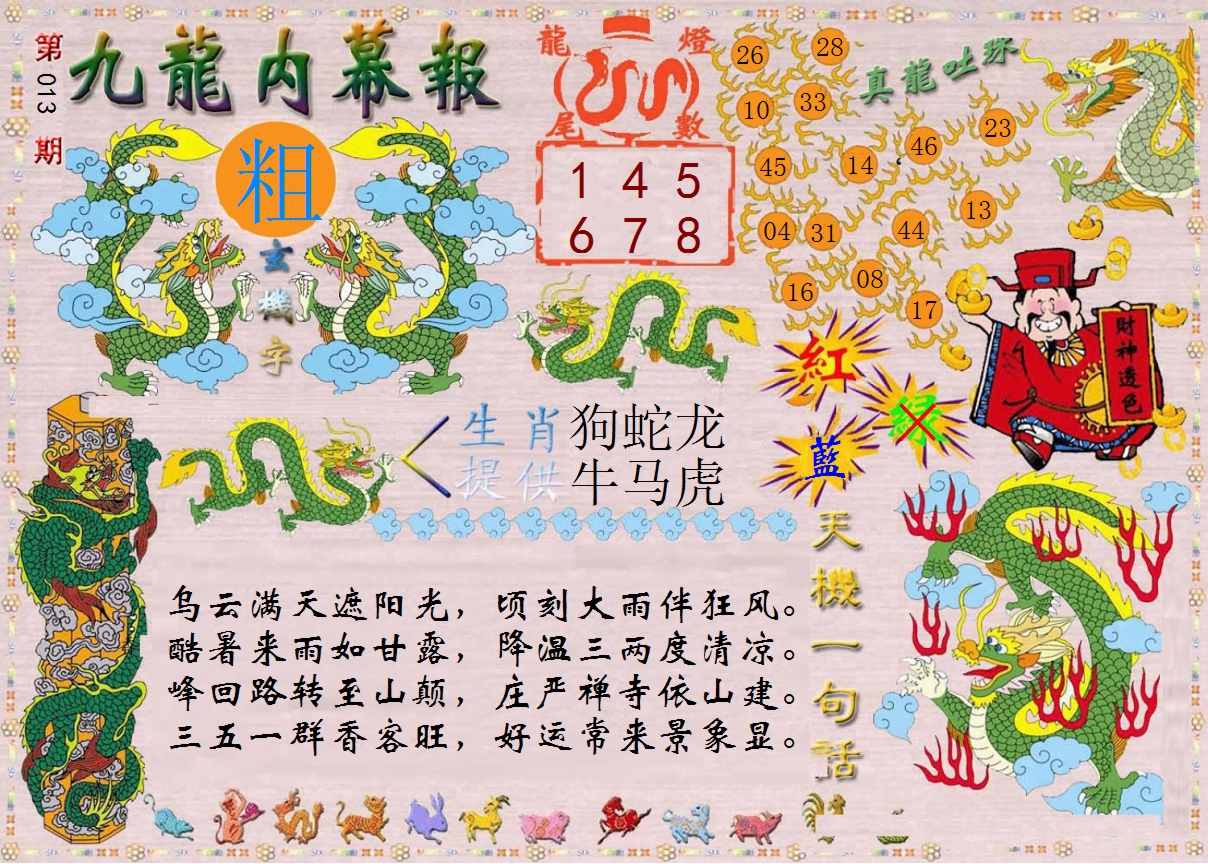 第013期
九龍内幕報
粗
玄機字
龍燈
尾數
1 4 5
6 7 8
真龍吐珠
26
28
10
33
45
14
46
23
04
31
44
13
16
08
17
財神透色
紅
绿
藍
生肖 狗蛇龙
提供 牛马虎
天機一句话
乌云满天遮阳光，顷刻大雨伴狂风。
酷暑来雨如甘露，降温三两度清凉。
峰回路转至山颠，庄严禅寺依山建。
三五一群香客旺，好运常来景象显。